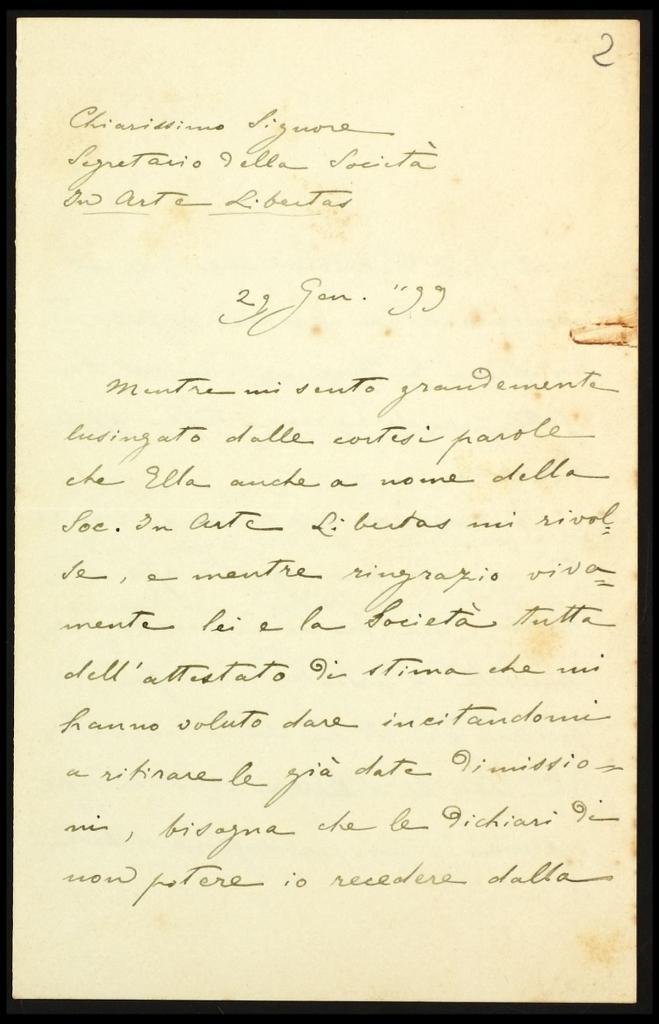 2
Chiarissimo Signore
Segretario della Società
In Arte Libertas
29 Gen. "99
Mentre mi sento grandemente
lusingato dalle cortesi parole
che Ella anche a nome della
Soc. In Arte Libertas mi rivol=
se, e mentre ringrazio viva=
mente lei e la Società tutta
dell'attestato di stima che mi
hanno voluto dare incitandomi
a ritirare le già date dimissio=
ni, bisogna che le dichiari di
non potere io recedere dalla